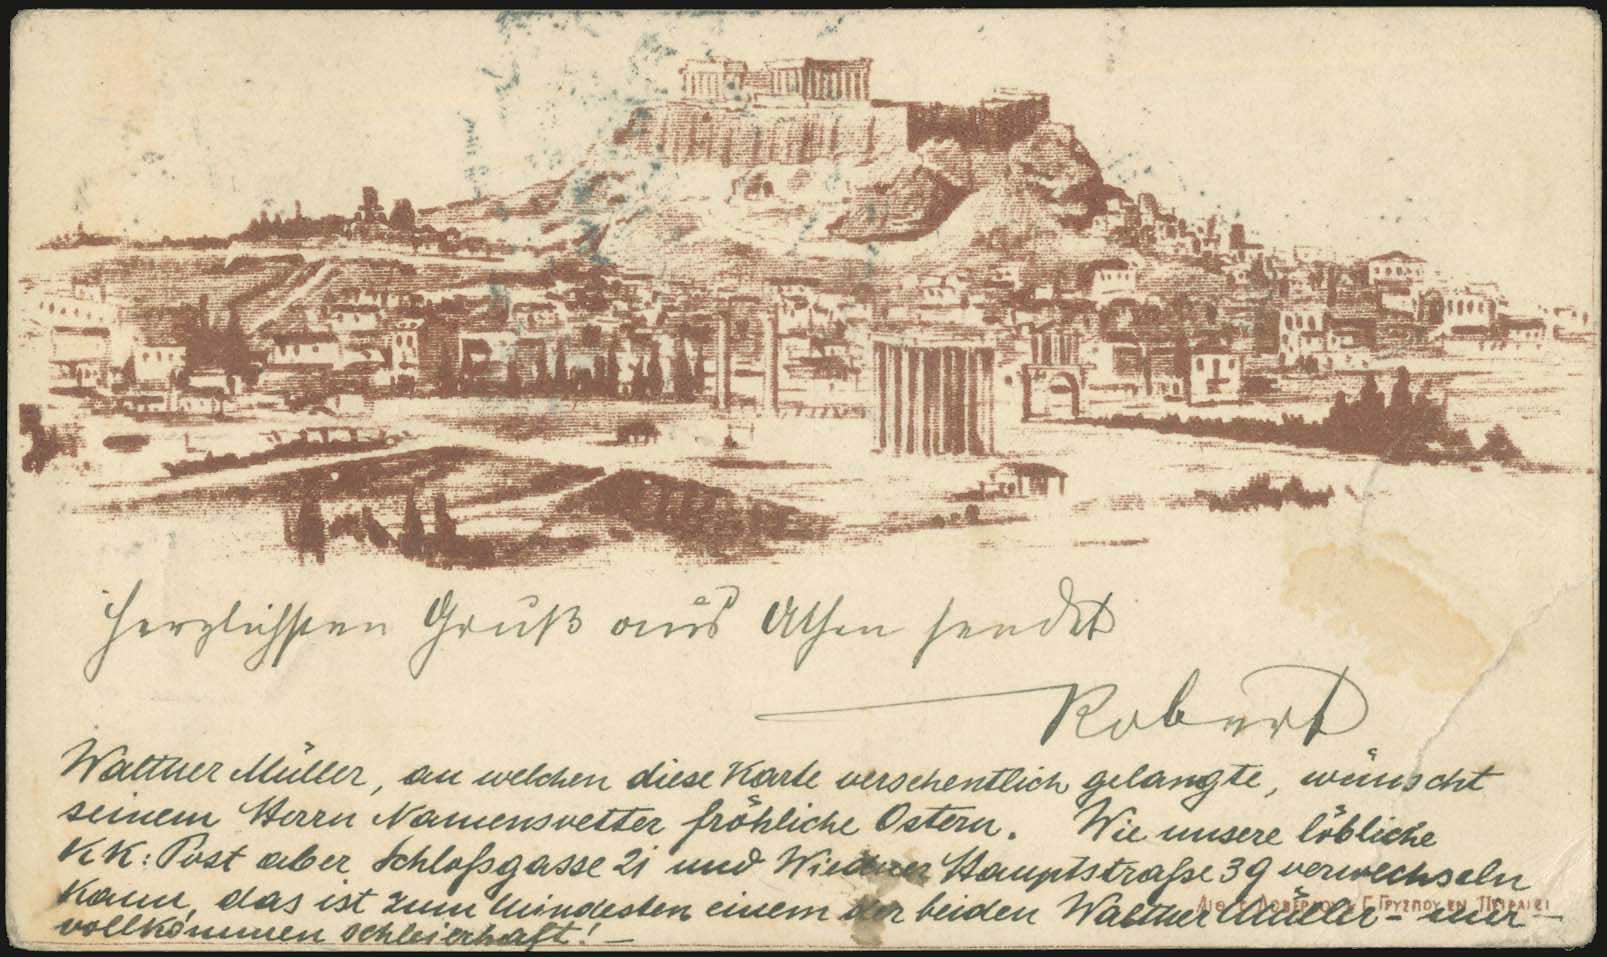 Herzlichsten Gruß aus Athen sendet
Robert
Walther Müller, an welchen diese Karte versehentlich gelangte, wünscht
seinem Herrn Namensvetter fröhliche Ostern. Wie unsere löbliche
KK: Post aber Schloßgasse 21 und Wiedner Hauptstraße 39 verwechseln
kann, das ist zum Mindesten einem der beiden Walther Müller – mir –
vollkommen schleierhaft! –
ΕΝ ΠΕΙΡΑΙΕΙ